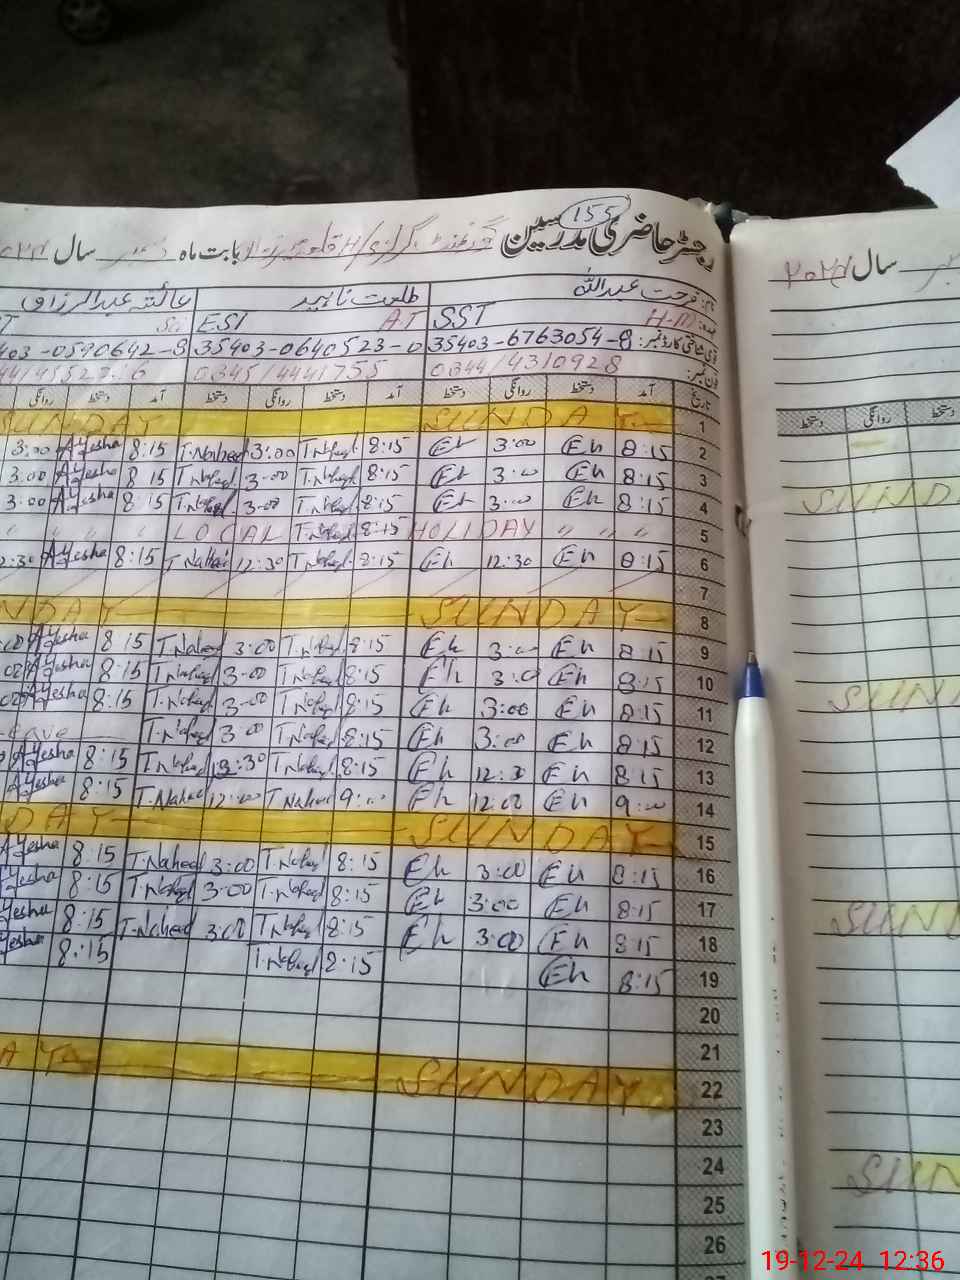 155
رجسٹر حاضری مدرسین بابت ماہ سال
سال ۲۰۲۴
نام: فرحت عبداللہ طلعت ناہید عائشہ عبدالرزاق
H-M SST A.T EST
35403-6763054-8 35403-0640523-0 403-0590642-8
فون نمبر: 0344/4310928 0345/4441755
تاریخ آمد دستخط روانگی دستخط آمد دستخط روانگی دستخط آمد دستخط روانگی
دستخط روانگی دستخط
1 SUNDAY SUNDAY
2 8:15 Eh 3:00 Eh 8:15 T.Naheed 3:00 T.Naheed 8:15 Ayesha 3:00
3 8:15 Eh 3:00 Eh 8:15 T.Naheed 3:00 T.Naheed 8:15 Ayesha 3:00
4 8:15 Eh 3:00 Eh 8:15 T.Naheed 3:00 T.Naheed 8:15 Ayesha 3:00
5 LOCAL T.Naheed 8:15 HOLIDAY " " " "
6 8:15 Eh 12:30 Eh 8:15 T.Naheed 12:30 T.Naheed 8:15 Ayesha 2:30
7
8 SUNDAY NDAY
9 8:15 Eh 3:00 Eh 8:15 T.Naheed 3:00 T.Naheed 8:15 Ayesha
10 8:15 Eh 3:00 Eh 8:15 T.Naheed 3:00 T.Naheed 8:15 Ayesha
11 8:15 Eh 3:00 Eh 8:15 T.Naheed 3:00 T.Naheed 8:15 Ayesha
12 8:15 Eh 3:00 Eh 8:15 T.Naheed 3:00 T.Naheed eave
13 8:15 Eh 12:30 Eh 8:15 T.Naheed 12:30 T.Naheed 8:15 Ayesha
14 9:00 Eh 12:00 Eh 9:00 T.Naheed 12:00 T.Naheed 8:15 Ayesha
15 SUNDAY DAY
16 8:15 Eh 3:00 Eh 8:15 T.Naheed 3:00 T.Naheed 8:15 Ayesha
17 8:15 Eh 3:00 Eh 8:15 T.Naheed 3:00 T.Naheed 8:15 yesha
18 8:15 Eh 3:00 Eh 8:15 T.Naheed 3:00 T.Naheed 8:15 yesha
19 8:15 Eh 8:15 T.Naheed 8:15 yesha
20
21
22 SUNDAY AY
23
24
25
26
SUND
SUN
SUN
SUN
19-12-24 12:36